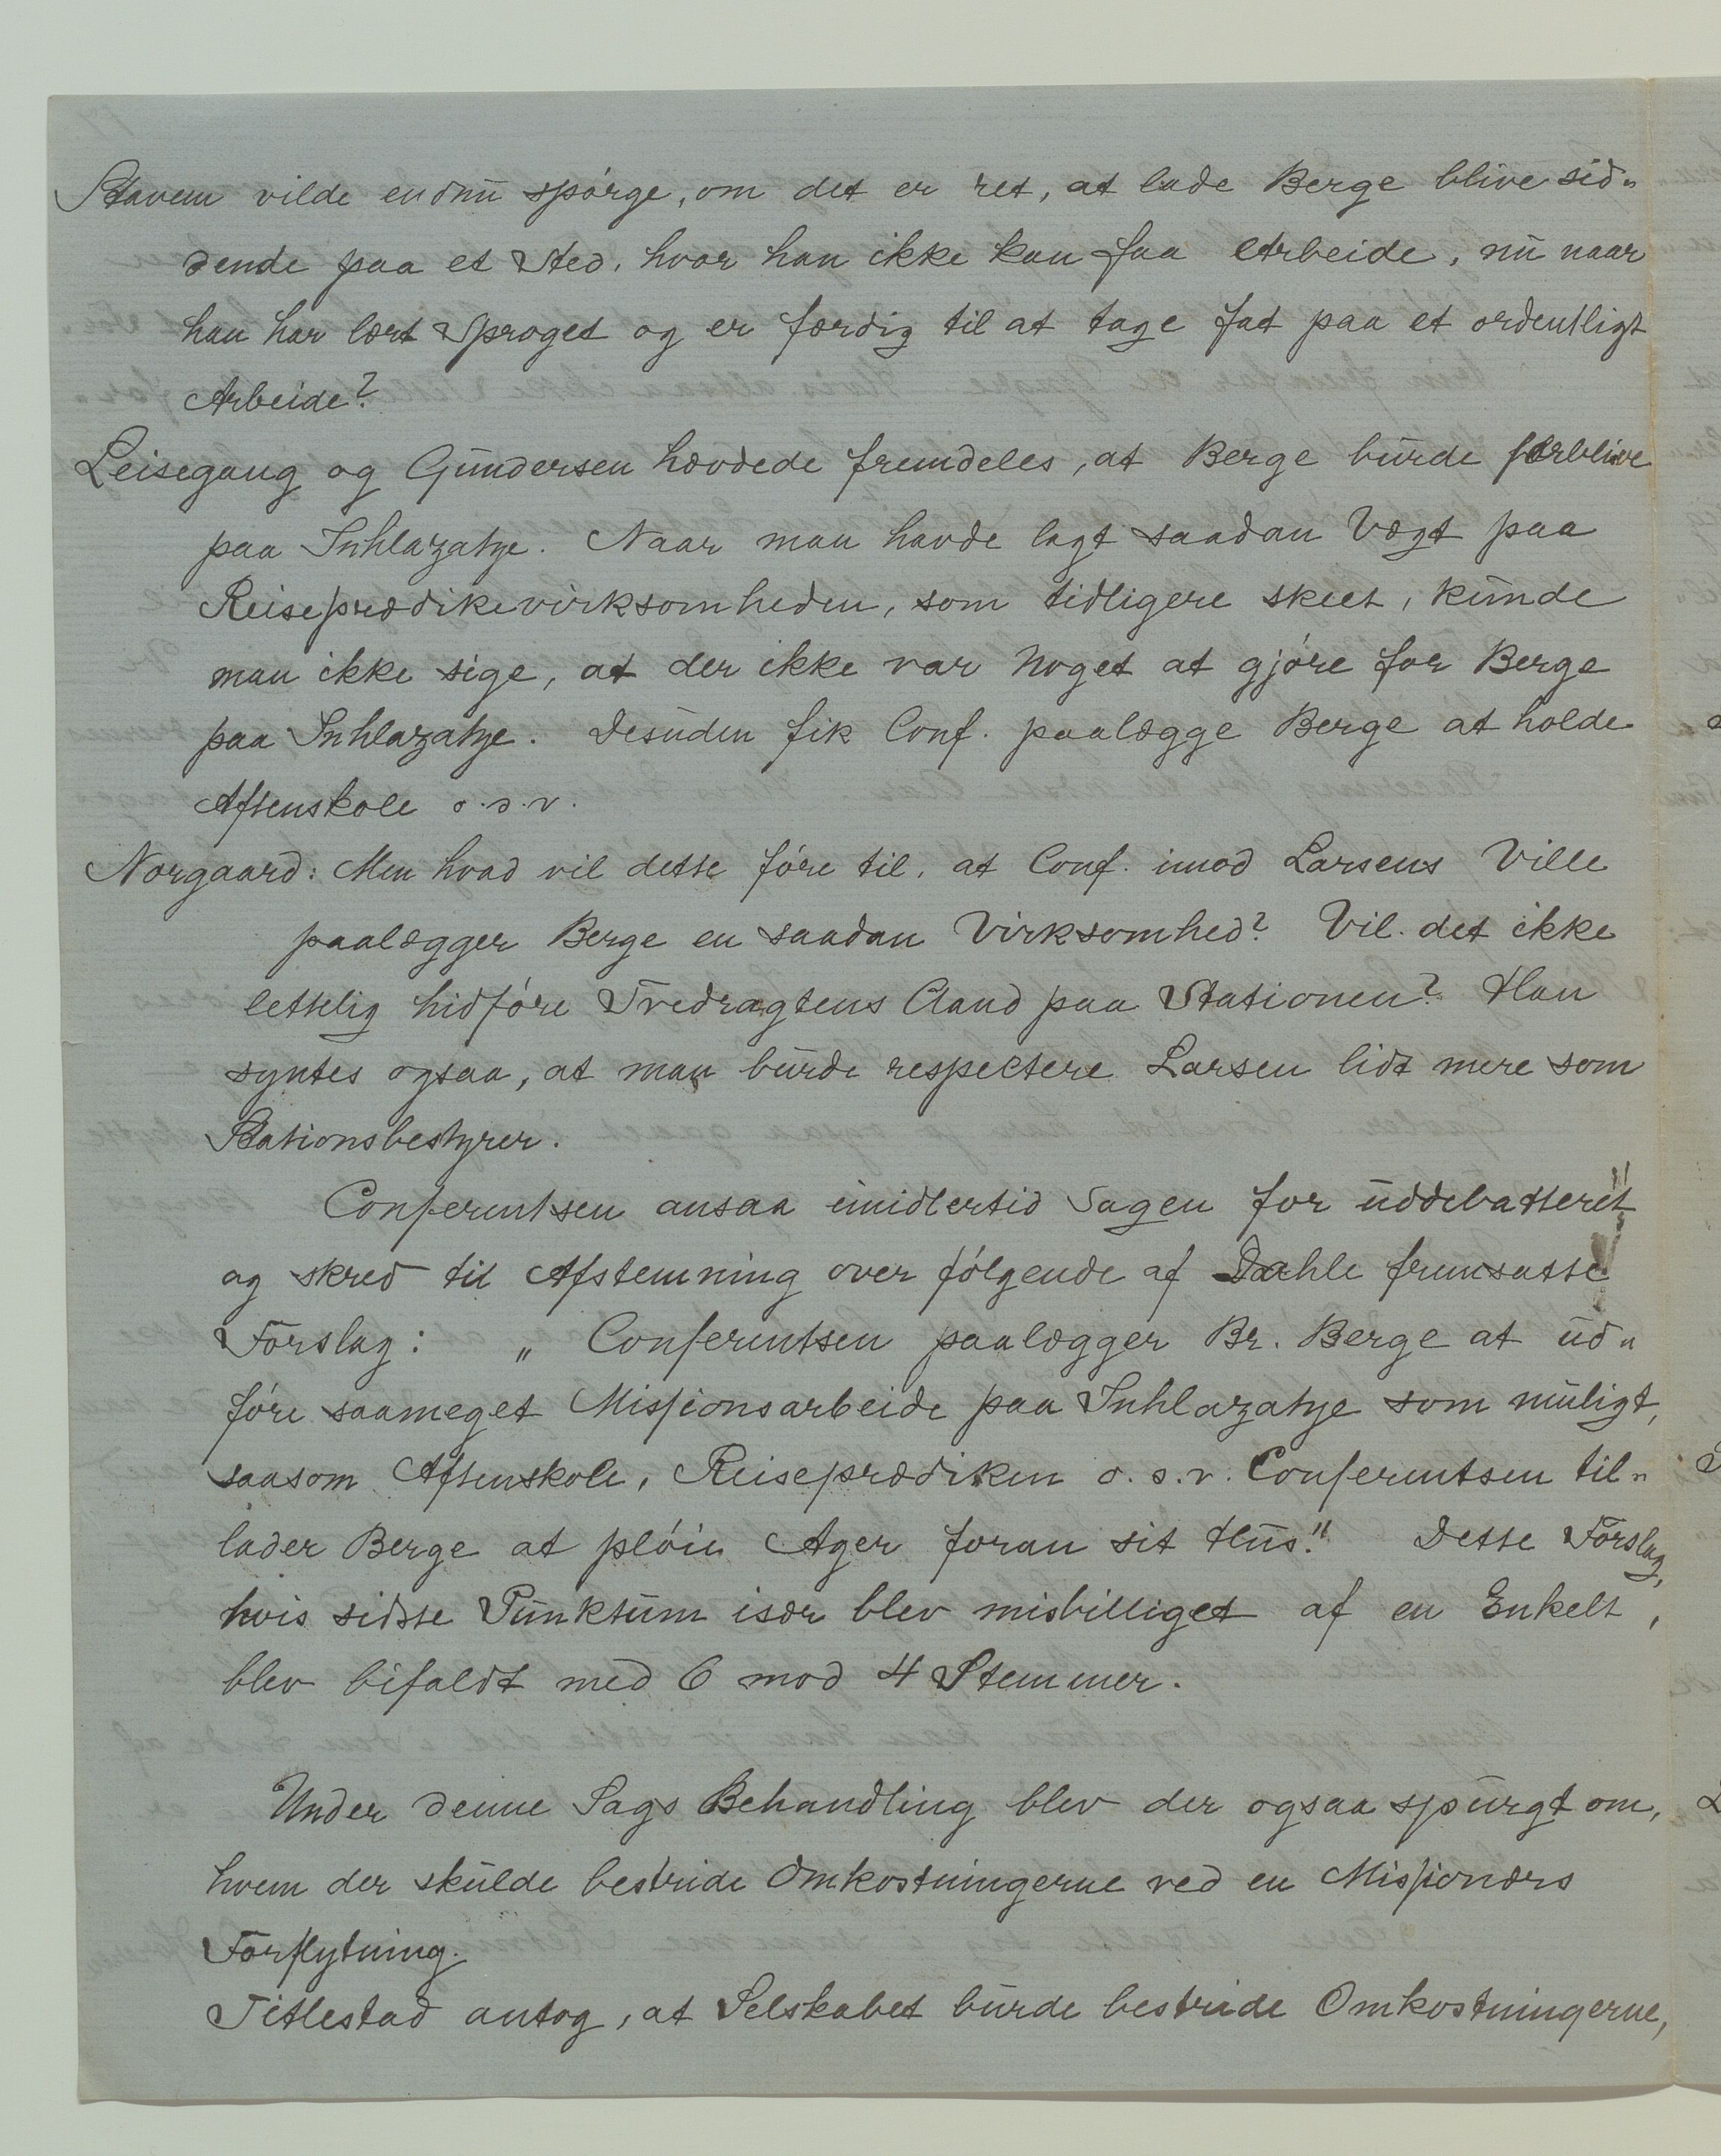 Stavem vilde endnu spórge, om det er ret, at lade Berge blive sid„
dende paa et Sted, hvor han ikke kan faa Arbeide, nu naar
han har lært Sproget og er færdig til at tage fat paa et ordentligt
Arbeide?
Leisegang og Gundersen hævdede fremdeles, at Berge burde forblive
paa Inhlazatye. Naar man havde lagt saadan Vægt paa
Reiseprædikevirksomheden, som tidligere skeet, kunde
man ikke sige, at der ikke var Noget at gjóre for Berge
paa Inhlazatye. Desuden fik Conf. paalægge Berge at holde
Aftenskole o.s.v.
Norgaard: Men hvad vil dette fóre til, at Conf. imod Larsens Ville
paalægger Berge en saadan Virksomhed? Vil det ikke
lettelig hidfóre Tvedragtens Aand paa Stationen? Han
syntes ogsaa, at man burde respectere Larsen lidt mere som
Stationsbestyrer.
Conferentsen ansaa imidlertid Sagen for uddebatteret
og skred til Afstemning over fólgende af Dahle fremsatte
Forslag: „ Conferentsen paalægger Br. Berge at ud„
fóre saameget Missionsarbeide paa Inhlazatye som muligt,
saasom Aftenskole, Reiseprædiken o.s.v. Conferentsen til„
lader Berge at plóie Ager foran sit Hus." Dette Forslag,
hvis sidste Punktum især blev misbilliget af en Enkelt,
blev bifaldt med 6 mod 4 Stemmer.
Under denne Sags Behandling blev der ogsaa spurgt om,
hvem der skulde bestride Omkostningerne ved en Missionærs
Forflytning.
Titlestad antog, at Selskabet burde bestride Omkostningerne,